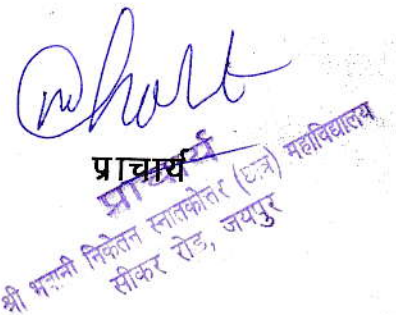 प्राचार्य
प्राचार्य
श्री भवानी निकेतन स्नातकोत्तर (छात्र) महाविद्यालय
सीकर रोड, जयपुर